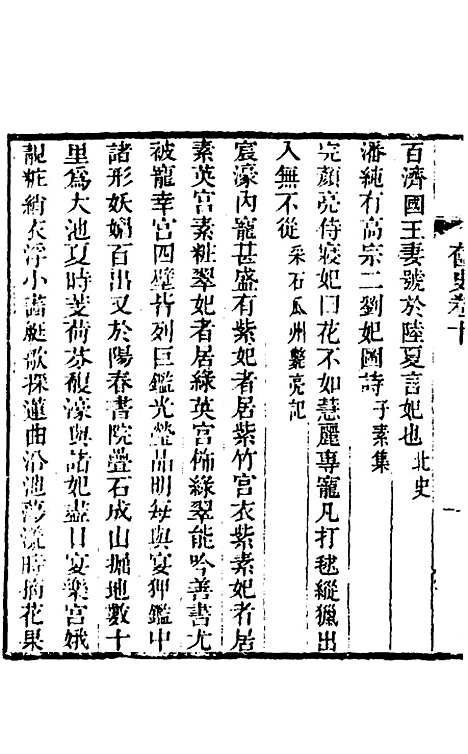 奩史卷十
一
百濟國王妻號於陸夏言妃也 北史
潘純有高宗二劉妃圖詩 子素集
完顏亮侍寢妃曰花不如慧麗專寵凡打毬縱獵出
入無不從 采石瓜州斃亮記
宸濠內寵甚盛有紫妃者居紫竹宮衣紫素妃者居
素英宮素粧翠妃者居綠英宮佈綠翠能吟善書尤
被寵幸宮四壁皆列巨鑑光瑩晶明每與宴狎鑑中
諸形妖媚百出又於陽春書院疊石成山掘地數十
里為大池夏時芰荷芬馥濠與諸妃盡日宴樂宮娥
靚粧綃衣浮小蕩艇歌採蓮曲沿池蕩漾時摘花果